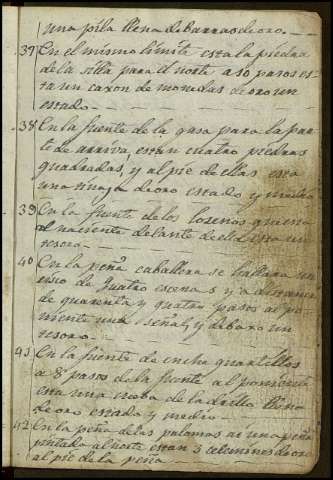 una pila llena de barras de oro.
37 En el mismo limite esta la piedra
de la silla para el norte a 50 pasos es
ta un caxon de monedas de oro un
estado
38 En la fuente de la gasa para la par
te de arriva, estan cuatro piedras
quadradas, y al pie de ellas esta
una tinaja de oro estado y medio
39 En la fuente de los
al naciente delante de ella esta un
tesoro
40 En la peña caballera se hallara un
de quatro y a distancia
de quarenta y quatro pasos al po
niente una señal, y debaxo un
tesoro.
41 En la fuente de enche quartillos
a 8 pasos de la fuente al poniente
esta una de ladrillo llena
de oro estado y medio
42 En la peña de las palomas ai una peña
pintada al norte estan 3 celemines de oro
al pie de la peña